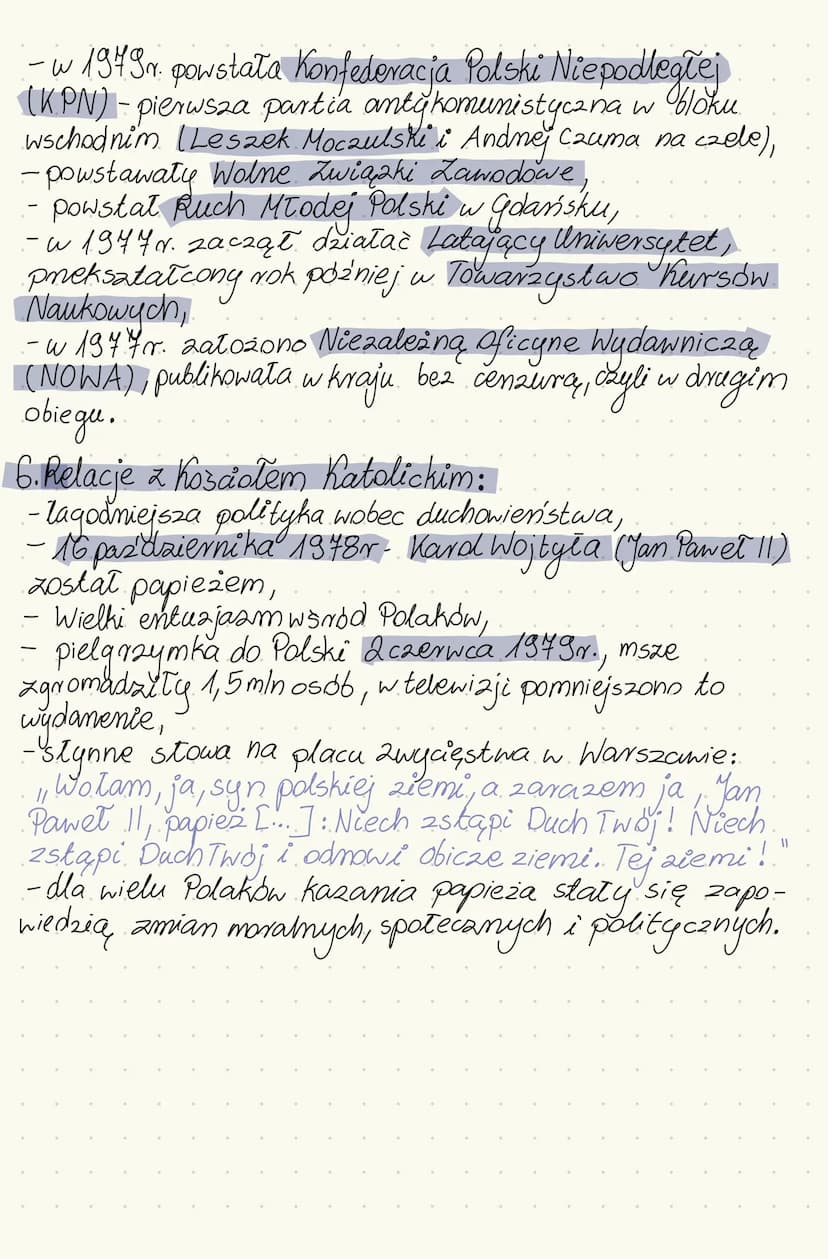 - w 1979r. powstała Konfederacja Polski Niepodległej
(KPN) - pierwsza partia antykomunistyczna w bloku
wschodnim (Leszek Moczulski i Andrzej Czuma na czele),
- powstawały Wolne Związki Zawodowe,
- powstał Ruch Młodej Polski w Gdańsku,
- w 1977r. zaczął działać Latający Uniwersytet,
przekształcony rok później w Towarzystwo Kursów
Naukowych,
- w 1977r. założono Niezależną Oficynę Wydawniczą
(NOWA), publikowała w kraju bez cenzurą, czyli w drugim
obiegu.
6. Relacje z Kościołem Katolickim:
- łagodniejsza polityka wobec duchowieństwa,
- 16 października 1978r - Karol Wojtyła (Jan Paweł II)
został papieżem,
- Wielki entuzjazm wśród Polaków,
- pielgrzymka do Polski 2 czerwca 1979r., msze
zgromadziły 1,5 mln osób, w telewizji pomniejszono to
wydarzenie,
- słynne słowa na placu zwycięstwa w Warszawie:
„Wołam, ja, syn polskiej ziemi, a zarazem ja, Jan
Paweł II, papież [...]: Niech zstąpi Duch Twój! Niech
zstąpi Duch Twój i odnowi oblicze ziemi. Tej ziemi!"
- dla wielu Polaków kazania papieża stały się zapo-
wiedzią zmian moralnych, społecznych i politycznych.